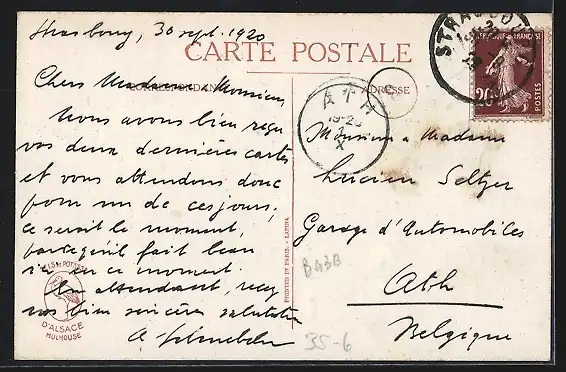 Strasbourg, 30 sept. 1920
CARTE POSTALE
CORRESPONDANCE
ADRESSE
Chers Madame, Monsieur,
Nous avons bien reçu
vos deux dernières cartes
et vous attendons donc
pour un de ces jours,
ce serait le moment,
parcequ'il fait beau
en ce moment.
En attendant, recev
vos bien sincères salutations
ATH
19-20
X
REPUBLIQUE FRANÇAISE
20
POSTES
Monsieur & Madame
Lucien Seltzer
Garage d'Automobiles
Ath
Belgique
PRINTED IN PARIS. - LAPINA
D'ALSACE
MULHOUSE
B43B
55-6